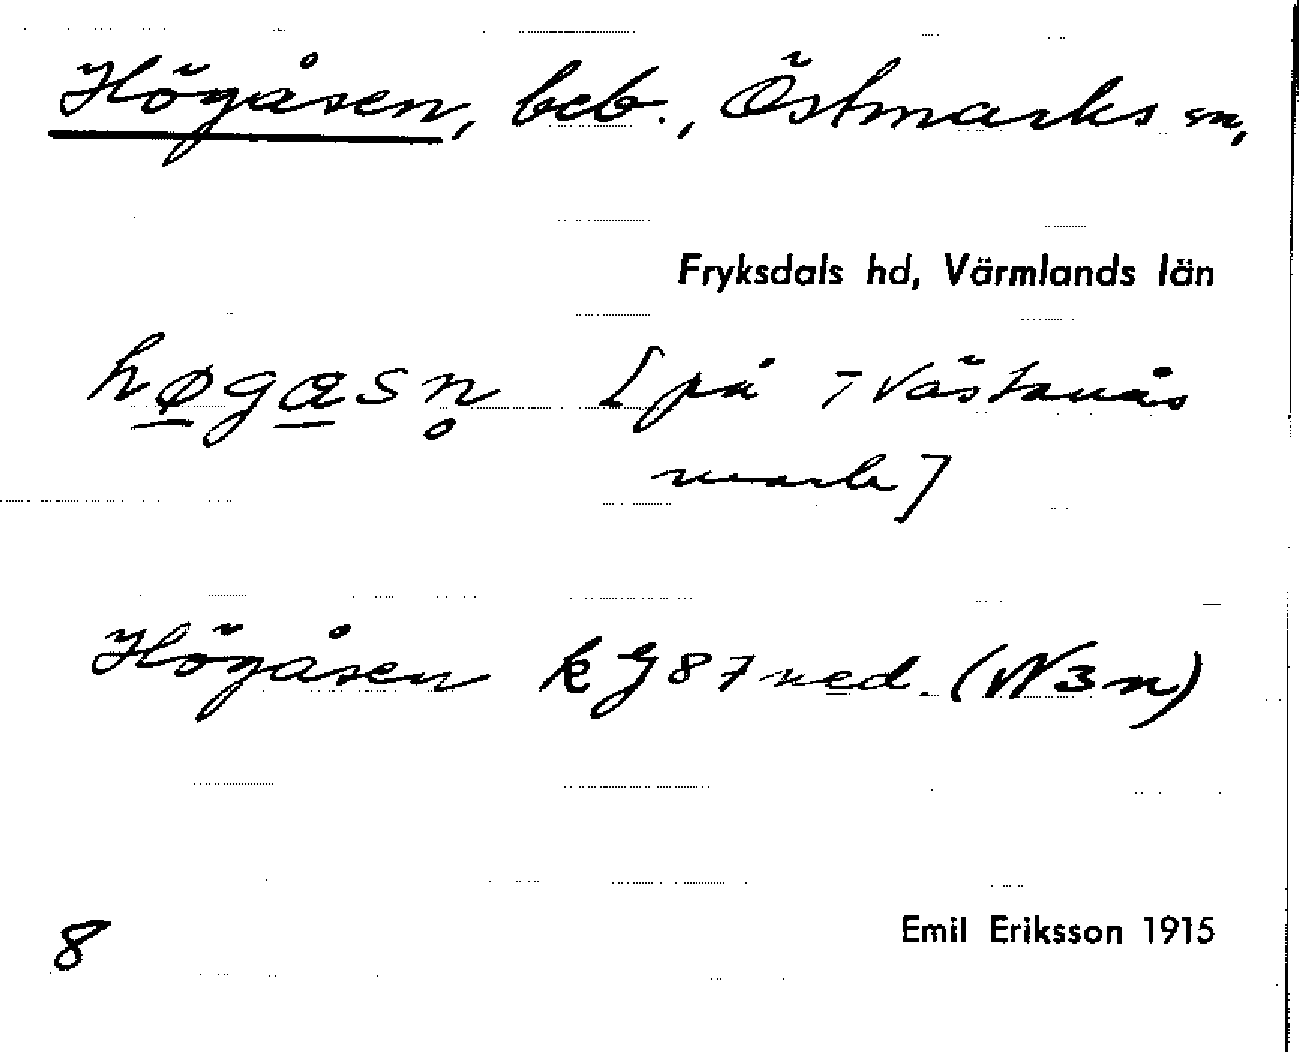 Högåsen, beb., Östmarks sn,
Fryksdals hd, Värmlands län
høgasn̥ [på 7 Västanås
mark]
Högåsen kJ 87 ned. (VV3n)
8
Emil Eriksson 1915